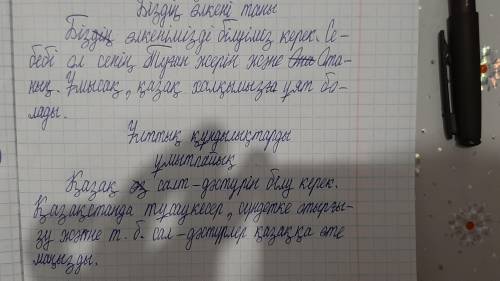 Біздің өлкені таны
Біздің өлкенімізді білуіміз керек. Се-
бебі ол сенің Туған жерің және Ота-
ның. Ұмысақ, қазақ халқымызға ұят бо-
лады.
Ұлттық құндылықтарды
ұмытпайық
Қазақ салт-дәстүрін білу керек.
Қазақстанда тұсаукесер, сүндетке отырғы-
зу және т. б. сал-дәстүрлер қазаққа өте
маңызды.